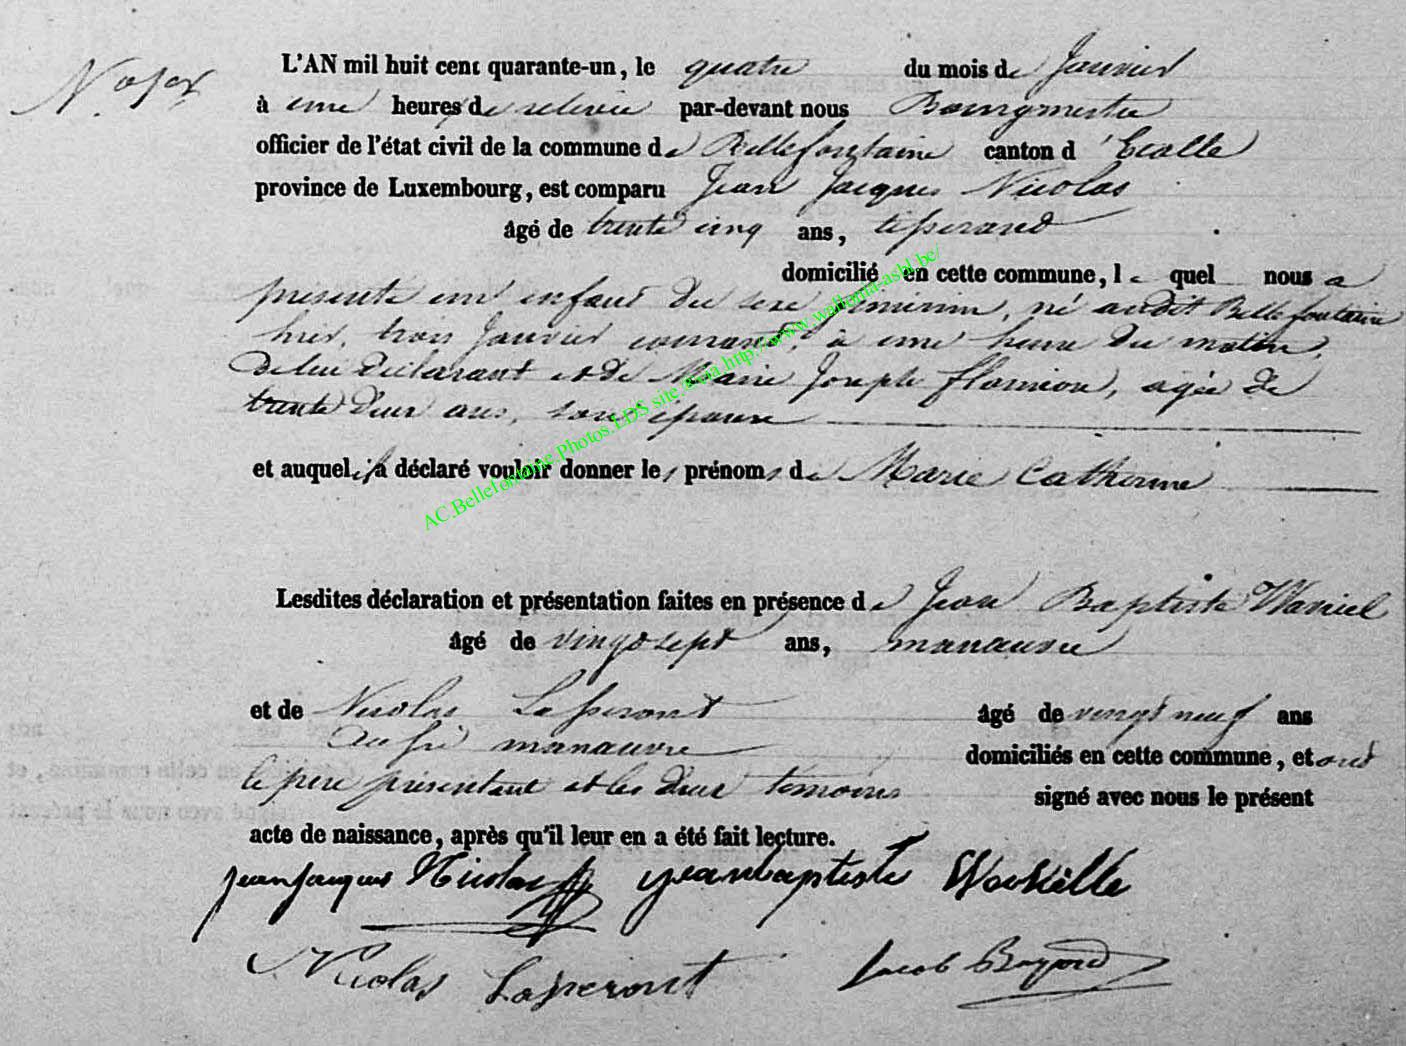 L'AN mil huit cent quarante-un, le quatre du mois de Janvier
à une heures de relevée par-devant nous Bourgmestre
officier de l'état civil de la commune de Bellefontaine canton d'Etalle
province de Luxembourg, est comparu Jean Jacques Nicolas
âgé de trente cinq ans, tisserand
domicilié en cette commune, le quel nous a
présenté un enfant du sexe féminin, né audit Bellefontaine
hier, trois Janvier courant, à une heure du matin,
de lui Déclarant et de Marie Joseph flamion, agée de
trente deux ans, son épouse
et auquel il a déclaré vouloir donner les prénoms de Marie Catherine
Lesdites déclaration et présentation faites en présence de Jean Baptiste
âgé de vingt sept ans, manœuvre
et de Nicolas Lasseront âgé de vingt neuf ans
aussi manœuvre domiciliés en cette commune, et ont
le père présentant et les deux témoins signé avec nous le présent
acte de naissance, après qu'il leur en a été fait lecture.
jean jacques Nicolas jean baptiste
Nicolas Lasseront Jacob
AC.Bellefontaine.Photos.LDS site.Geia.http://www.wallonia-asbl.be/